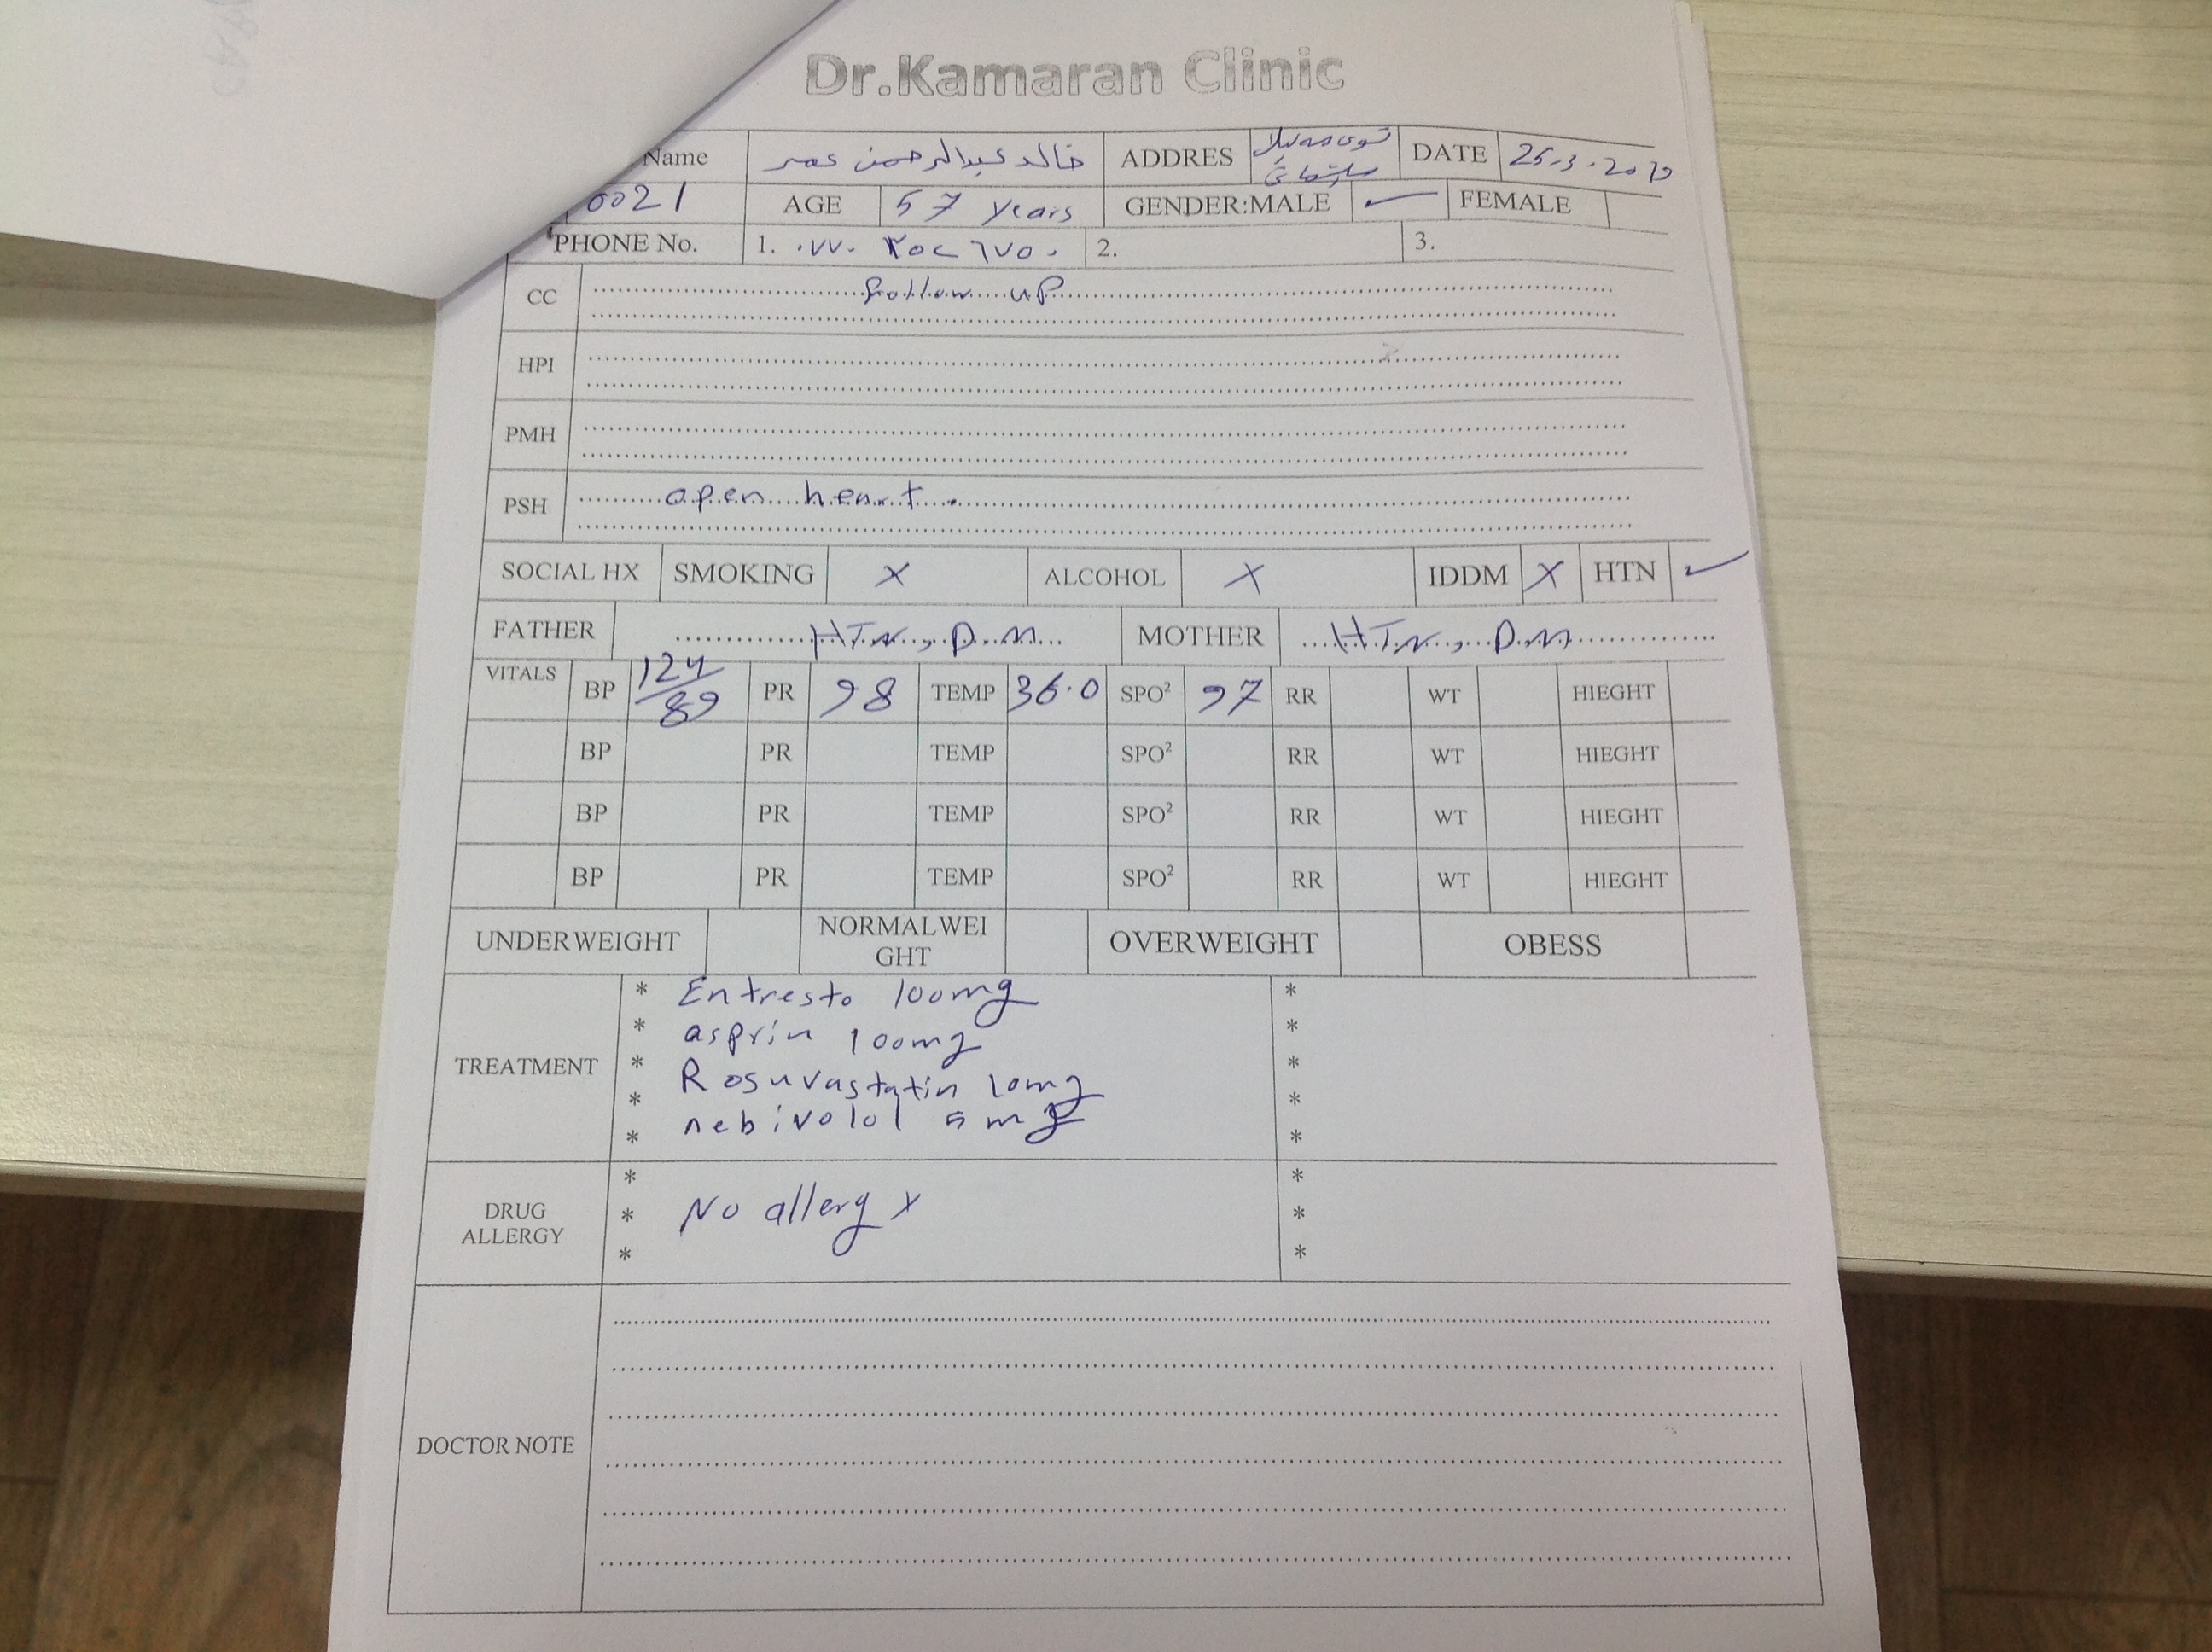 Dr.Kamaran Clinic
Name خالد عبدالرحمن عمر ADDRES DATE 25.3.2019
0021 AGE 57 years GENDER:MALE ✓ FEMALE
PHONE No. 1. 2. 3.
CC follow up
HPI
PMH
PSH open heart.
SOCIAL HX SMOKING X ALCOHOL X IDDM X HTN ✓
FATHER HTN, D.M MOTHER HTN, D.M
VITALS BP 124/89 PR 98 TEMP 36.0 SPO² 97 RR WT HIEGHT
BP PR TEMP SPO² RR WT HIEGHT
BP PR TEMP SPO² RR WT HIEGHT
BP PR TEMP SPO² RR WT HIEGHT
UNDERWEIGHT NORMALWEI
GHT OVERWEIGHT OBESS
TREATMENT
* Entresto 100mg *
* asprin 100mg *
* Rosuvastatin 10mg *
* nebivolol 5mg *
* *
DRUG
ALLERGY
* *
* No allergy *
* *
DOCTOR NOTE